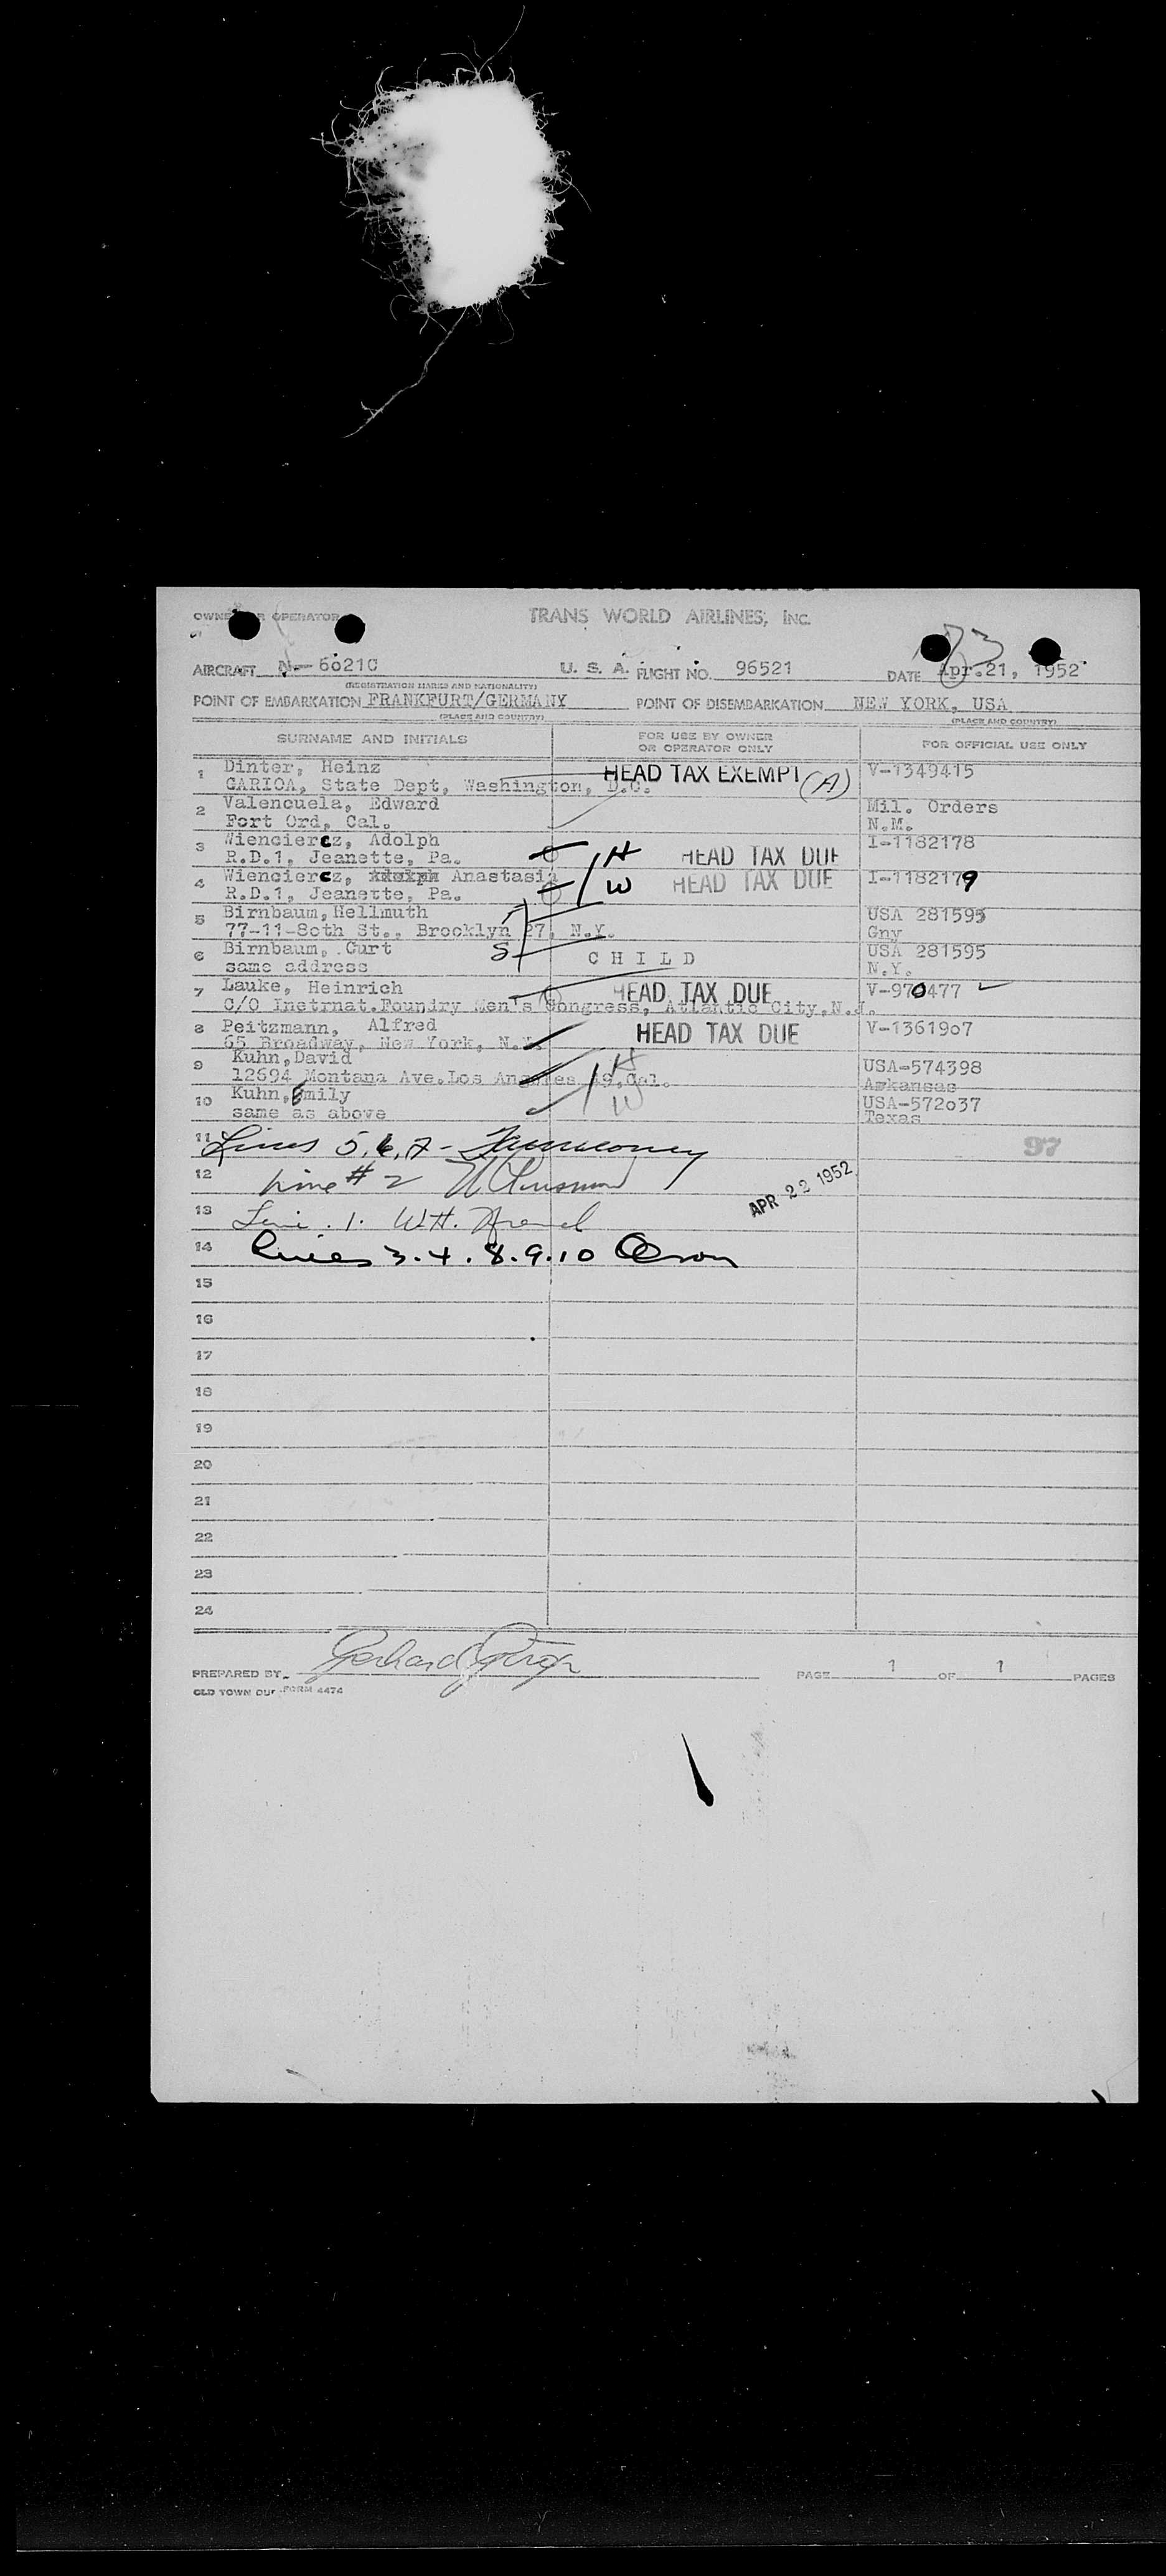 TRANS WORLD AIRLINES, INC.
OPERATOR
AIRCRAFT N-6021C U. S. A. FLIGHT NO. 96521 DATE Apr.21, 1952
(REGISTRATION MARKS AND NATIONALITY)
POINT OF EMBARKATION FRANKFURT/GERMANY POINT OF DISEMBARKATION NEW YORK, USA
(PLACE AND COUNTRY) (PLACE AND COUNTRY)
SURNAME AND INITIALS FOR USE BY OWNER OR OPERATOR ONLY FOR OFFICIAL USE ONLY
1 Dinter, Heinz HEAD TAX EXEMPT (A) V-1349415
GARIOA, State Dept, Washington, D.C.
2 Valencuela, Edward Mil. Orders
Fort Ord, Cal. N.M.
3 Wienciercz, Adolph I-1182178
R.D.1, Jeanette, Pa. H HEAD TAX DUE
4 Wienciercz, Anastasia W HEAD TAX DUE I-1182179
R.D.1, Jeanette, Pa.
5 Birnbaum, Hellmuth USA 281595
77-11-80th St., Brooklyn 27, N.Y. Gny
6 Birnbaum, Curt S CHILD USA 281595
same address N.Y.
7 Lauke, Heinrich HEAD TAX DUE V-970477
C/O Inetrnat.Foundry Men's Congress, Atlantic City,N.J.
8 Peitzmann, Alfred HEAD TAX DUE V-1361907
65 Broadway, New York, N.Y.
9 Kuhn,David H USA-574398
12694 Montana Ave.Los Angeles 49,Cal. Arkansas
10 Kuhn,Emily W USA-572037
same as above Texas
11 Lines 5,6,7- 97
12 Line # 2 APR 22 1952
13 Line . 1. W.H.
14 Lines 3.4.8.9.10 Olson
15
16
17
18
19
20
21
22
23
24
PREPARED BY Gerhard PAGE 1 OF 1 PAGES
OLD TOWN FORM 4474